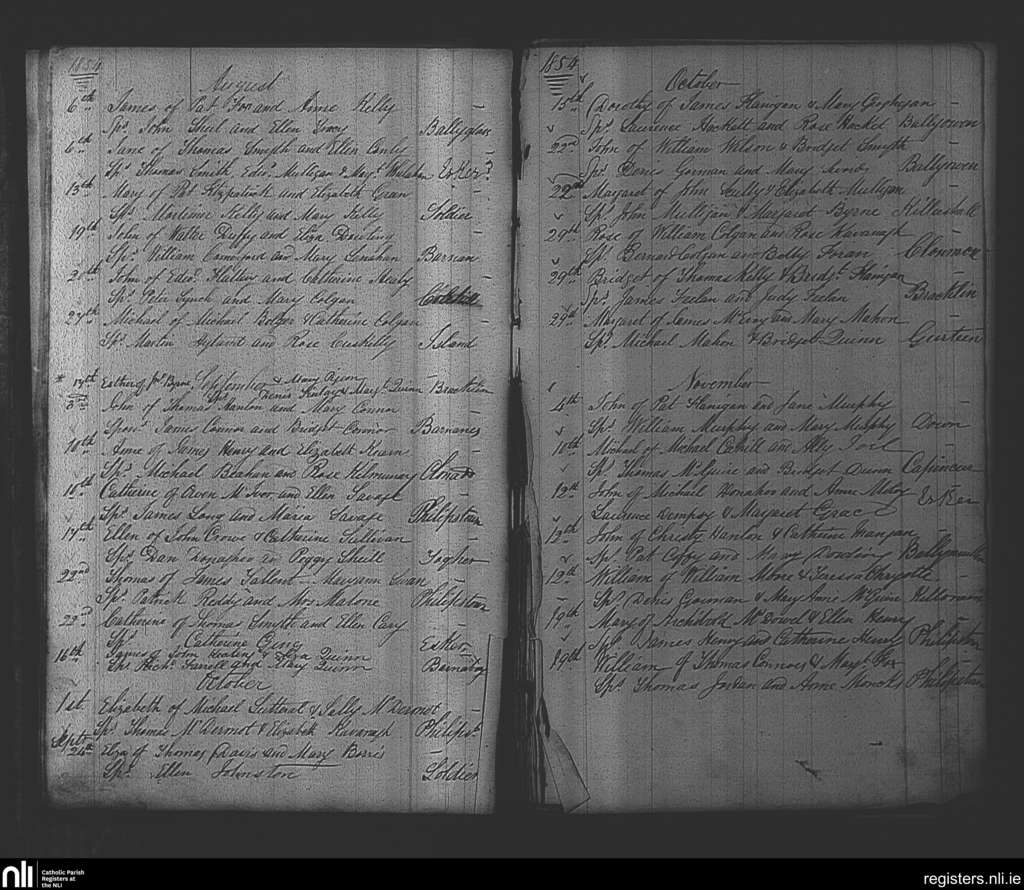 1854
August
6th James of Pat Fox and Anne Kelly
Sps. John Sheil and Ellen Ballyglass
6th Jane of Thomas Smyth and Ellen
Sps. Thomas Smith Edwd. Mulligan & Margt. Esker
13th Mary of Pat Fitzpatrick and Elizabeth
Sps. Mortimer Kelly and Mary Kelly Soldier
19th John of Walter Duffy and Eliza Dowling
Sps. William and Mary Lenahan Barnan
John of Edwd. and Catherine Healy
Sps. Peter Lynch and Mary Colgan
27th Michael of Michael Bolger & Catherine Colgan
Sps. Martin Hyland and Rose Island
September
* 17th Esther of Jas. Byrne, & Mary
Sps. Denis Kinlay & Margt. Quinn Bracklin
3rd John of Thomas Hanlon and Mary Connor
Spons. James Connor and Bridget Connor Barnanes
10th Anne of James Henry and Elizabeth Kearn
Sps. Michael Brahan and Rose Kilmurray Clonad
10th Catherine of Owen McIvor and Ellen Savage
Sps. James Long and Maria Savage Philipstown
17th Ellen of John Crowe & Catherine Sullivan
Sps. Dan Donagher & Peggy Sheill Togher
22nd Thomas of James Tallent Maryann
Sps. Patrick Reddy and Mrs Malone Philipstown
23rd Catherine of Thomas Smyth and Ellen Cary
Sps. Catherine Esker
16th James of John Keating & Eliza Quinn
Sps. Richd. Farrell and Mary Quinn Barnaboy
October
1st Elizabeth of Michael Lutteral & Sally McDermot
Sps. Thomas McDermot & Elizabeth Kavanagh Philipst.
Septr. 24th Eliza of Thomas Davis and Mary Borris
Sps. Ellen Johnston Soldier
1854
October
15th Dorothy of James Flanigan & Mary Geoghegan
Sps. Laurence Hackett and Rose Hacket Ballyowen
22nd John of William Wilson & Bridget Smyth
Sps. Denis Gorman and Mary Ballyowen
22nd Margaret of John Scully & Elizabeth Mulligan
Sps. John Mulligan & Margaret Byrne Killeshall
29th Rose of William Colgan and Rose Kavanagh
Sps. Bernard Colgan and Betty Foran Clonmore
29th Bridget of Thomas Kelly & Bridt. Flanigan
Sps. James Feelan and Judy Feelan Bracklin
29th Margaret of James McEvoy and Mary Mahon
Sps. Michael Mahon & Bridget Quinn Gurteen
November
4th John of Pat Flanigan and Jane Murphy
Sps. William Murphy and Mary Murphy Down
10th Michael of Michael Cahill and Ally
Sps. Thomas McGuire and Bridget Dunn Capincur
12th John of Michael Honahoe and Anne Esker
Laurence Dempsy & Margaret Grace
12th John of Christy Hanlon & Catherine Mangan
Sps. Pat Coffey and Mary Dowling
12th William of William Moore & Teresa
Sps. Denis Gorman & Mary Anne McGuire
19th Mary of Archibold McDowel & Ellen Henry
Sps. James Henry and Catherine Henry Philipstn
19th William of Thomas Connors & Margt. Fox
Sps. Thomas Jordan and Anne Moncks Philipstn
nli Catholic Parish
Registers at
the NLI
registers.nli.ie